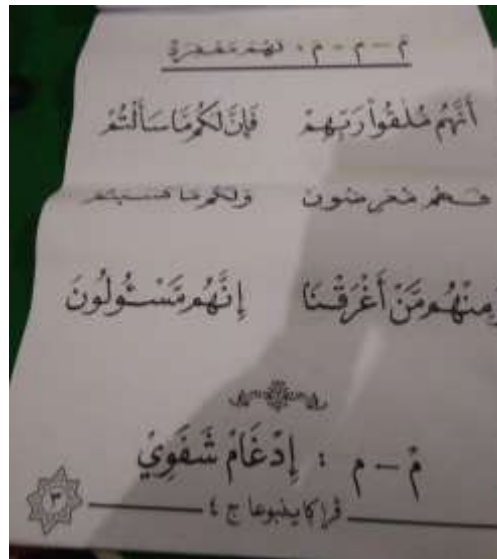 مْ – م - م : لَهُمْ مَغْفِرَةٌ
أَنَّهُم مُّلَٰقُوا۟ رَبِّهِمْ فَإِنَّ لَكُم مَّا سَأَلْتُمْ
فَهُم مُّعْرِضُونَ وَلَكُم مَّا كَسَبْتُمْ
مِنْهُم مَّنْ أَغْرَقْنَا إِنَّهُم مَّسْـُٔولُونَ
مْ – م : إِدْغَامْ شَفَوِيْ
٣
ج ٤